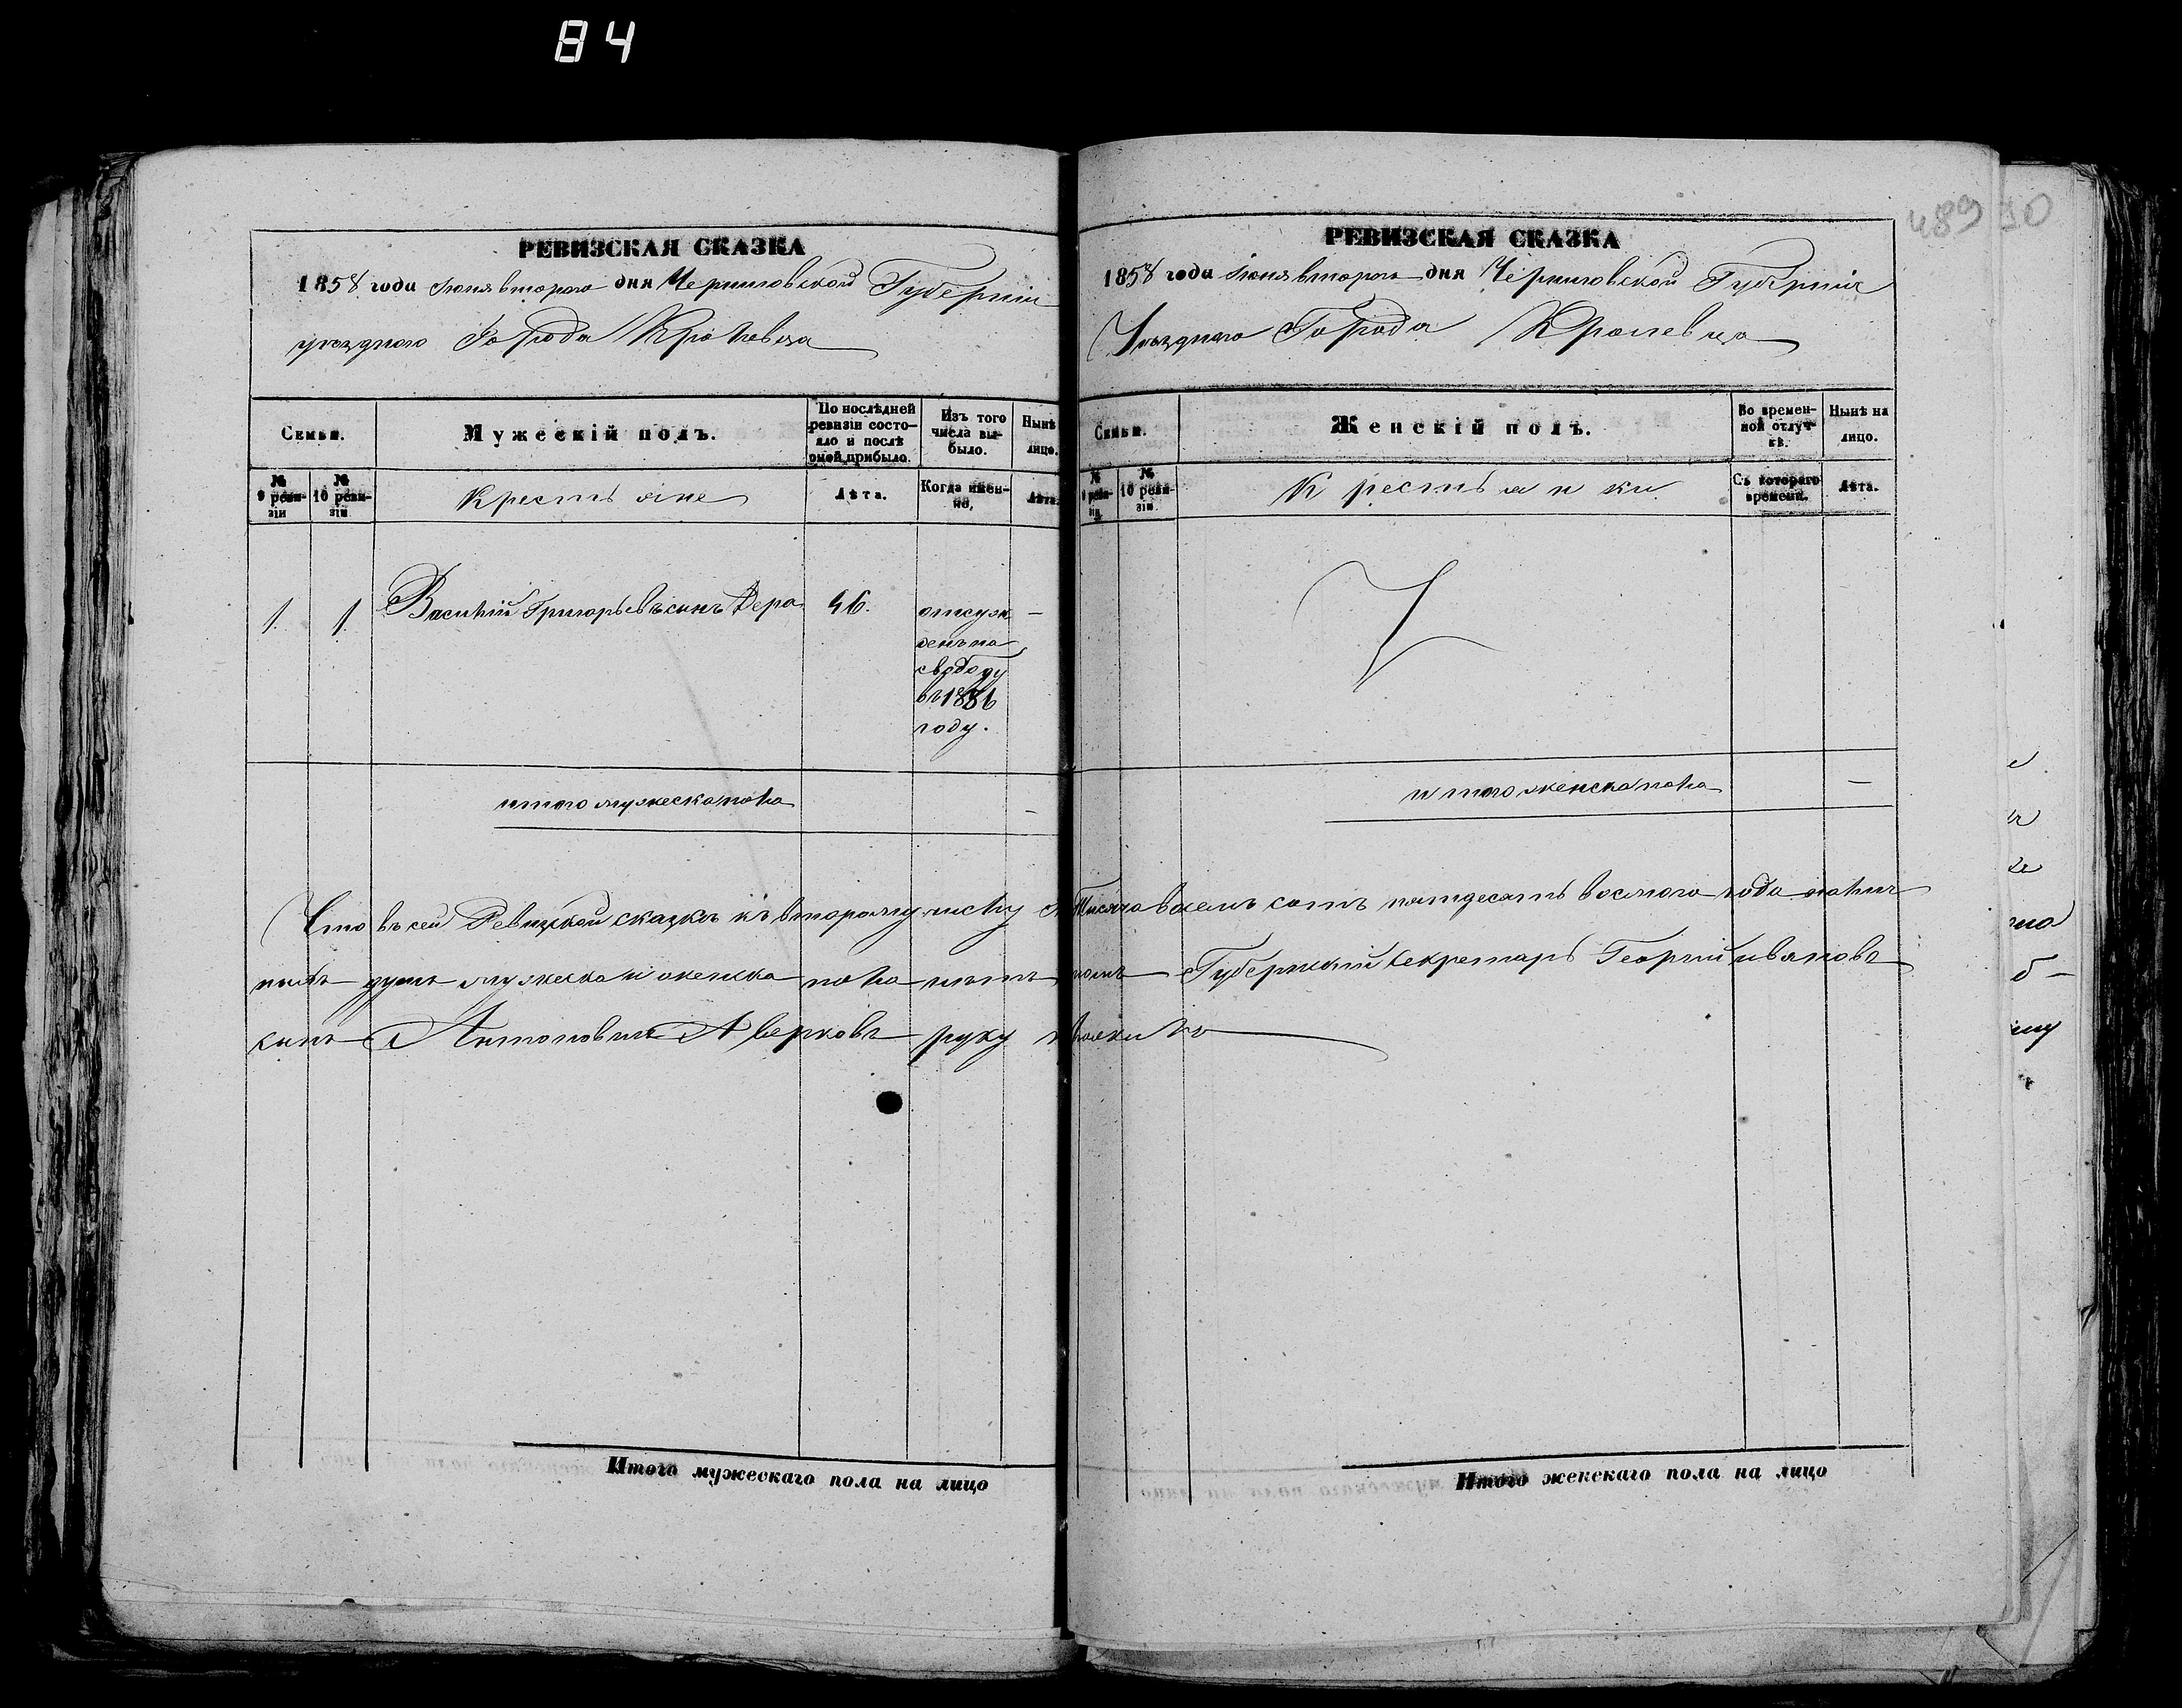 84
489 90
РЕВИЗСКАЯ СКАЗКА
1858 года Іюня второго дня Черниговской Губерніи
уѣзднаго Города Кролевца
Семьи.
Мужескій полъ.
По послѣдней ревизіи состояло и послѣ оной прибыло.
Изъ того числа выбыло.
Нынѣ лицо.
№ 9 ревизіи
№ 10 ревизіи
Крестьяне
Лѣта.
Когда именно.
Лѣта.
1.
1.
Василій Григорьевъ сынъ
46.
отсуж
денъ на
свободу
въ
году.
—
итого мужеска пола
—
РЕВИЗСКАЯ СКАЗКА
1858 года Іюня второго дня Черниговской Губерніи
Уѣзднаго Города Кролевца
Семьи.
Женскій полъ.
Во временной отлучкѣ.
Нынѣ на лицо.
№ 9 ревизіи
№ 10 ревизіи
Крестьянки
Съ котораго времени.
Лѣта.
итого женска пола
—
Что въ сей Ревизской сказкѣ къ второму числу Тысяча восемъ сотъ пятдесятъ восмого года
душъ мужеска и женска пола нѣтъ Губернскій Секретарь Георгій Ивановъ
сынъ Антоновичъ Аверковъ руку
Итого мужескаго пола на лицо
Итого женскаго пола на лицо